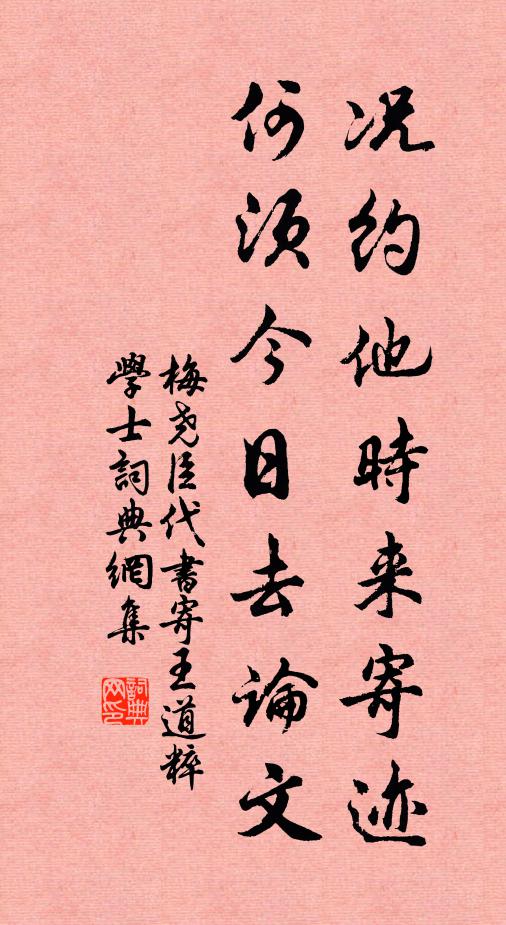 况约他時来寄迹
何须今日去論文
梅尧臣代書寄王道粹
學士詞典網集
詞典网印